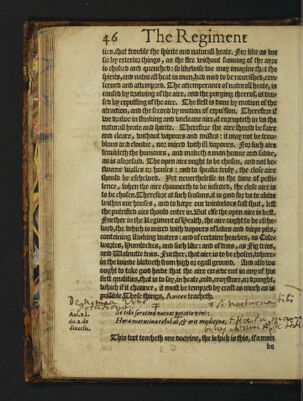 46 The Regiment
ties, that trouble the spirits and naturall heate. For like as we
see by exterior things, as the fire without fanning of the ayre
is choked and quenched: so likewise we may imagine that the
spirits, and naturall heat in man, had nede to be nourished, con-
serued and attempred. The attemperance of naturall heate, is
caused by drawing of the aire, and the purging therof, is cau-
sed by expulsing of the aire. The first is done by motion of the
attraction, and the second by motion of expulsion. Therfore if
we drawe in stinking and vncleane aire, it corrupteth in vs the
naturall heate and spirits. Therefore the aire should be faire
and cleare, without vapours and mistes: it may not be trou-
blous and cloudie, nor mixed with ill vapours. For such aire
troubleth the humours, and maketh a man heauie and sadde,
as is aforesaid. The open aire ought to be chosen, and not be-
tweene walles or houses: and to speake truly, the close aire
should be eschewed. Yet neuerthelesse in the time of pesti-
lence, when the aire chaunceth to be infected, the close aire is
to be chosen. Therefore at such seasons, it is good for vs to abide
within our houses, and to kepe our windowes fast shut, least
the putrified aire should enter in. But else the open aire is best.
Further in the Regiment of Health, the aire ought to be esche-
wed, the which is mixed with vapours of lakes and depe pits,
containing stinking waters: and of certaine hearbes, as Cole-
wortes, Humlockes, and such like: and of trees, as Fig trees,
and Walnutte trees. Further, that aire is to be chosen, where-
in the winde bloweth from high or egall ground. And also we
ought to take good hede that the aire excede not in any of his
first qualities, that is to say, in heate, cold, moysture, or drought,
which if it chaunce, it must be tempred by craft as much as is
possible. These things, Auicen teacheth.
Si nocturna tibi
Aui. 2. 1.
do. 2. de
diuersu.
Si tibi serotina noceat potatio vini:
Hora matutina rebibas, et erit medicina.
This text teacheth one doctrine, the which is this, if a man
be